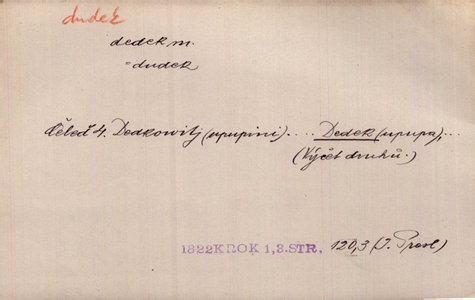 dudek
dedek m.
= dudek
Čeleď 4. Dedkowitj (upupini) .... Dedek (upupa), ...
(Výčet druhů.)
1822 KROK 1,3. STR. 120,3 (J. Presl)